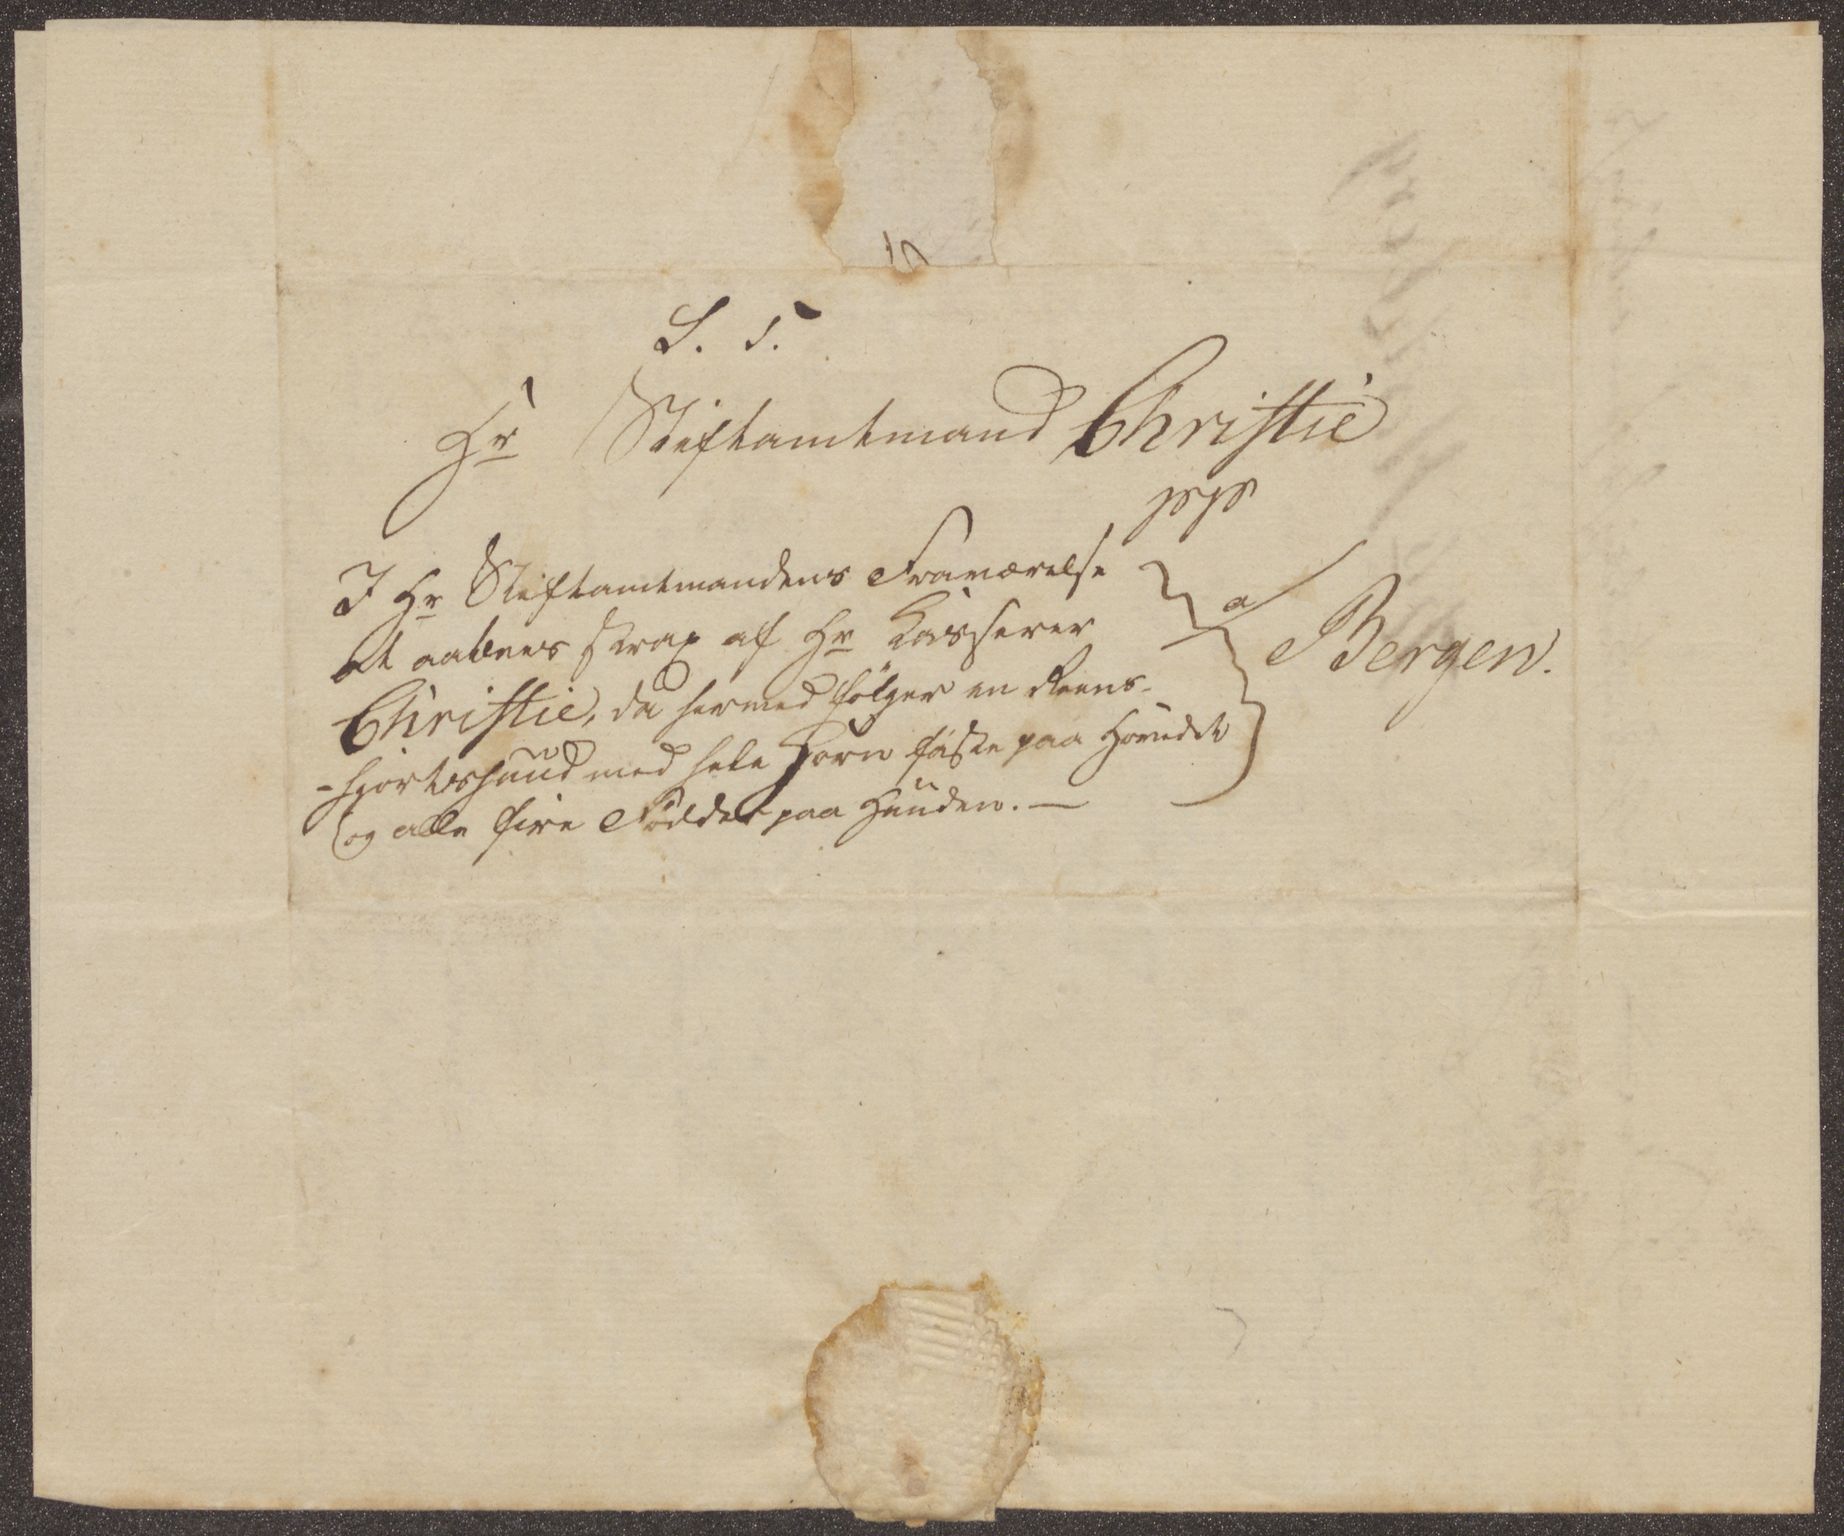 S. T.
Hr Stiftamtmand Christie
psps
I Hr Stiftamtmandens Fraværelse
at aabnes strax af Hr Kasserer
Christie, da hermed følger en Reens-
-hjortshuud med hele Horn faste paa Hovedet
og alle fire Fødder paa Huuden. —
a/ Bergen.